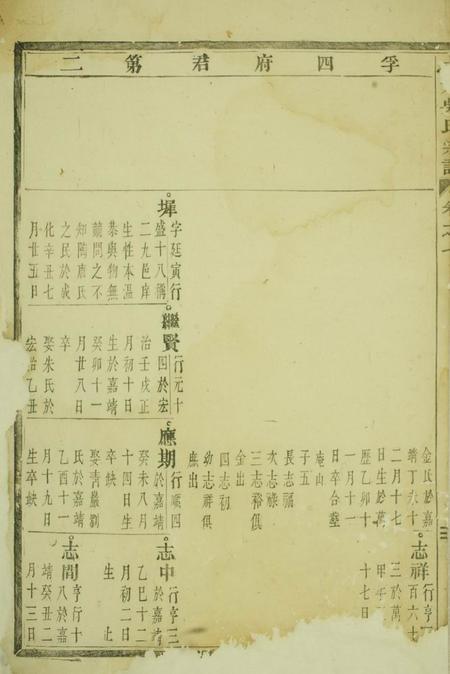 孚四府君第二
墀
字廷寅行
盛十八稱
二九邑庠
生性本溫
恭與物無
競問之不
知陶唐氏
之民於成
化辛丑七
月廿五日
繼賢
行元十
四於宏
治壬戌正
月初十日
生於嘉靖
癸卯十一
月廿八日
卒
娶朱氏於
宏治乙丑
金氏於嘉
靖丁亥十
二月十七
日生於萬
歷乙卯十
一月十一
日卒合塟
子五
長志福
次志祿
三志裕俱
金出
四志初
幼志祥俱
庶出
應期
行順四
於嘉靖
癸未八月
十四日生
卒缺
娶青巖劉
氏於嘉靖
乙酉十一
月十九日
生卒缺
志祥
行亨一
百六十
三於萬
十七日
志中
行亨三
於嘉靖
乙巳十二
月初二日
生 止
志閭
亨行十
八於嘉
靖癸丑二
月十三日